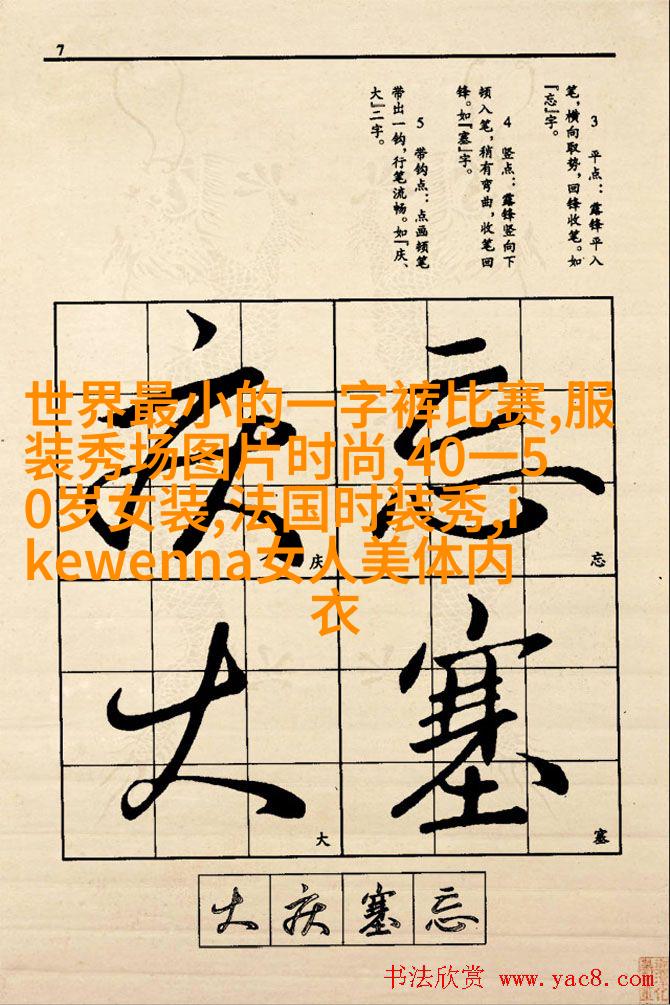 7
3 平点：露锋平入
笔，横向取势，回锋收笔。如
『忘』字。
4 竖点：露锋竖向下
顿入笔，稍有弯曲，收笔回
锋。如『塞』字。
5 带钩点：点画顿笔
带出一钩，行笔流畅。如『庆、
大』二字。
世界最小的一字裤比赛,服
装秀场图片时尚,40一5
0岁女装,法国时装秀,i
kewenna女人美体内
衣
忘
忘
塞
塞
庆
庆
大
大
大 庆 塞 忘
书法欣赏 www.yac8.com